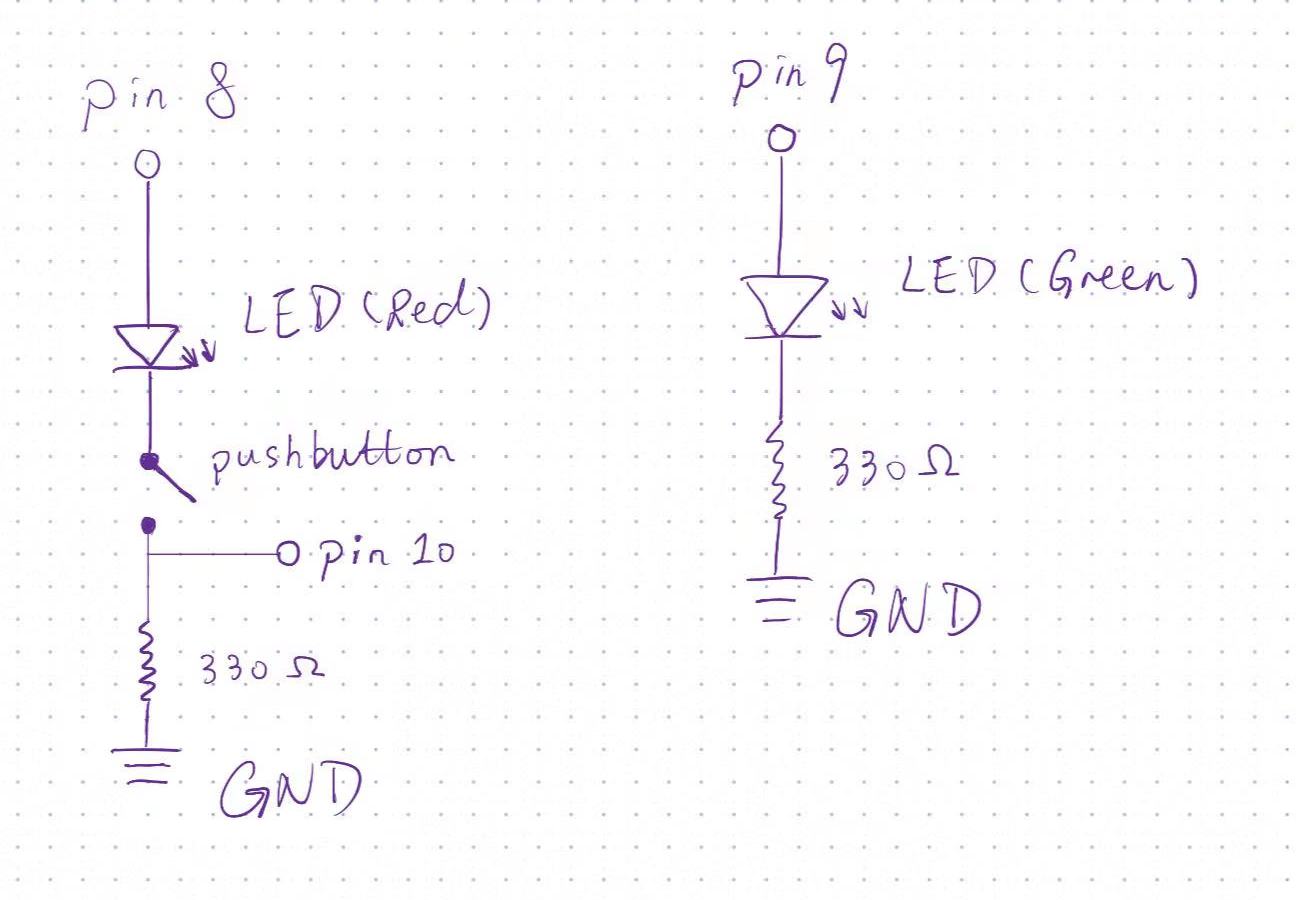 pin 8
LED (Red)
pushbutton
pin 10
330 Ω
GND
pin 9
LED (Green)
330 Ω
GND